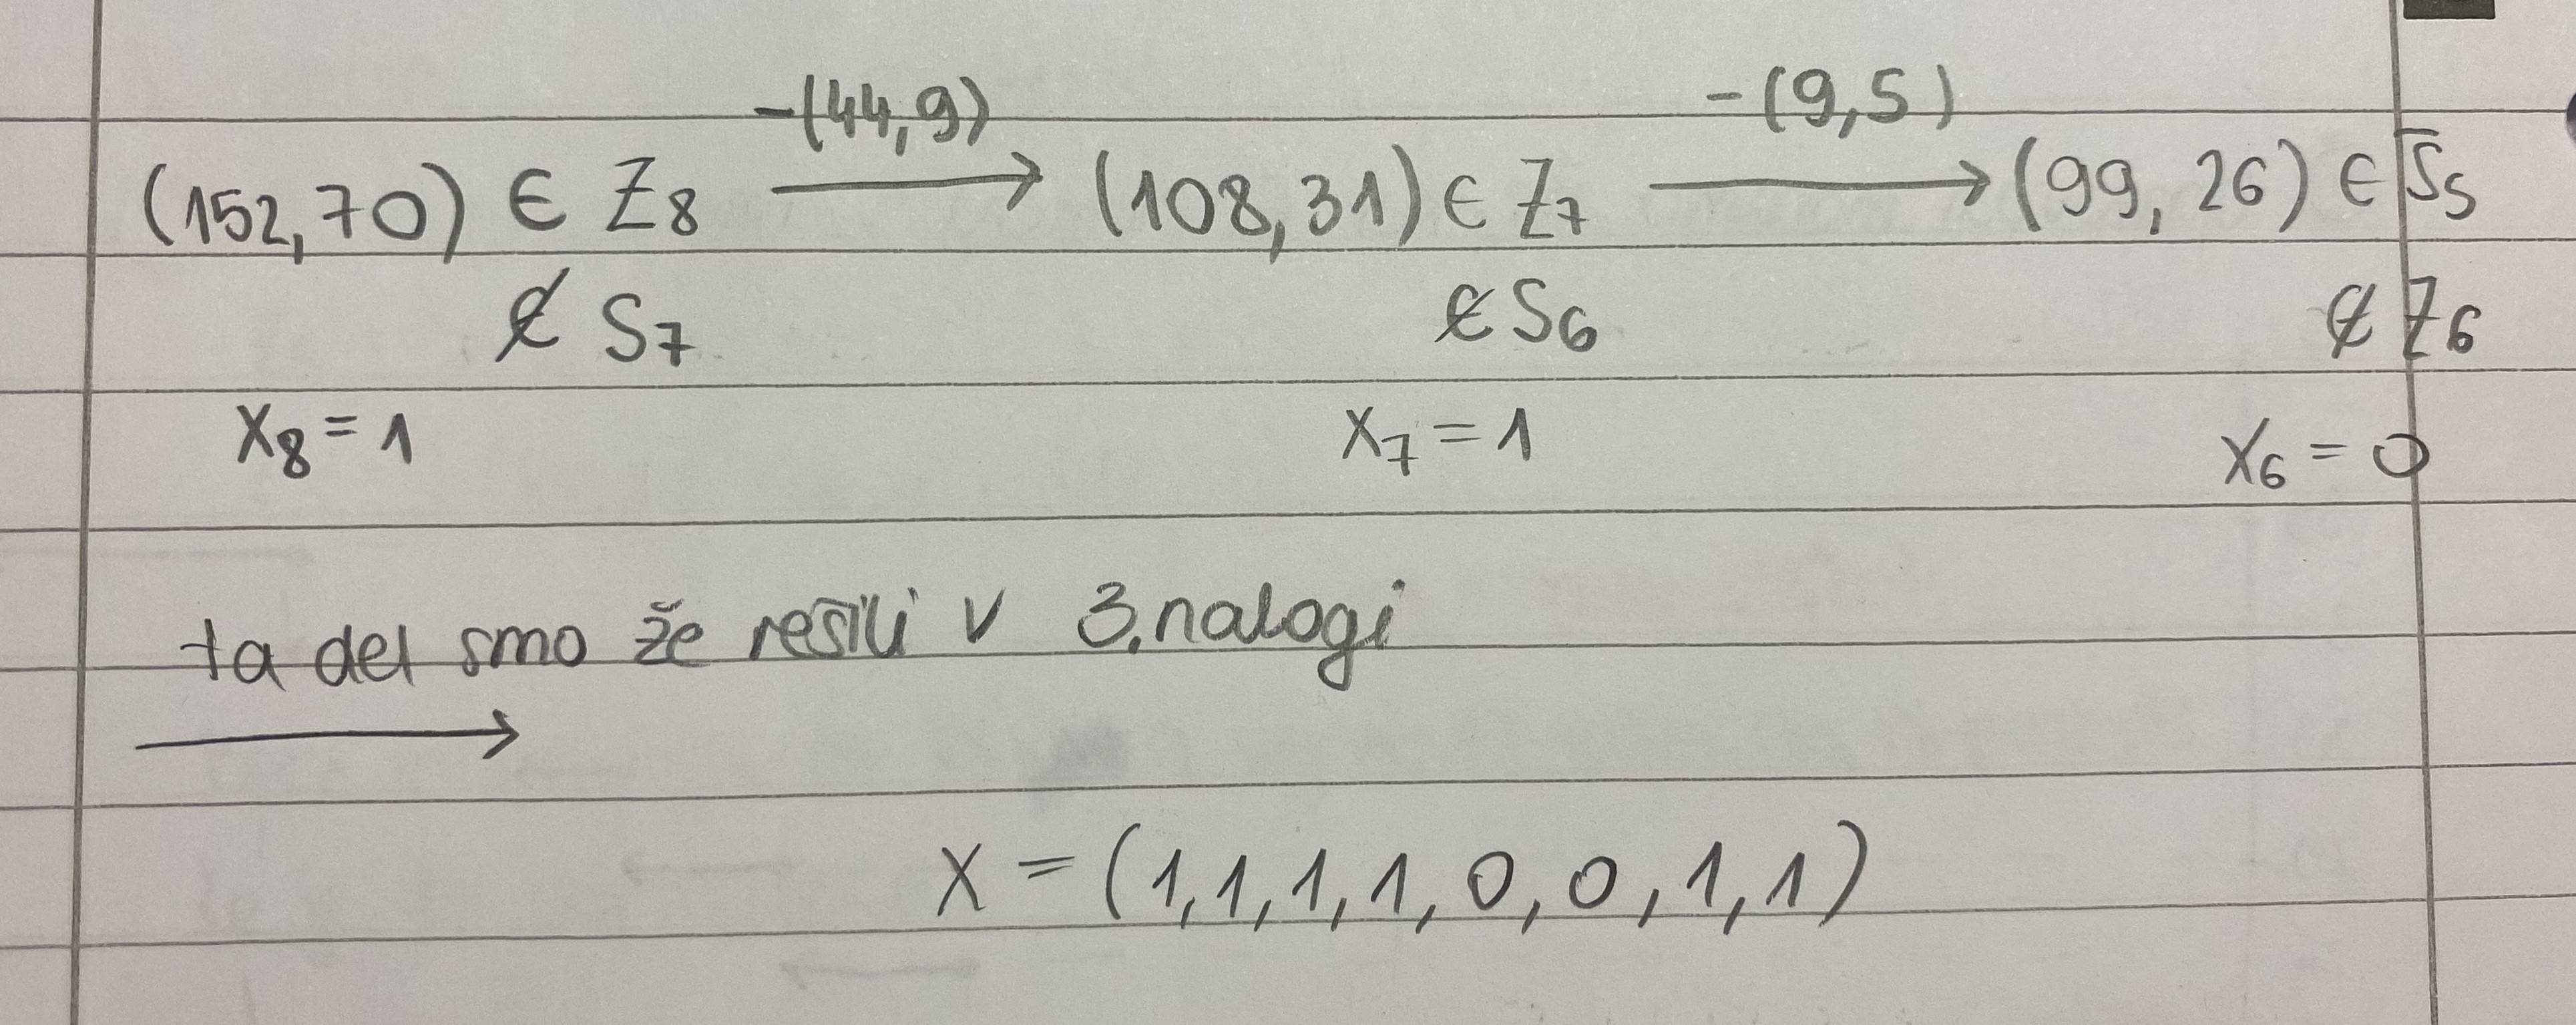 -(44,9) -(9,5)
(152,70) ∈ Z₈ → (108,31) ∈ Z₇ → (99,26) ∈ S₅
∉ S₇ ∉ S₆ ∉ Z₆
X₈ = 1 X₇ = 1 X₆ = 0
ta del smo že rešili v 3. nalogi
→
X = (1,1,1,1,0,0,1,1)